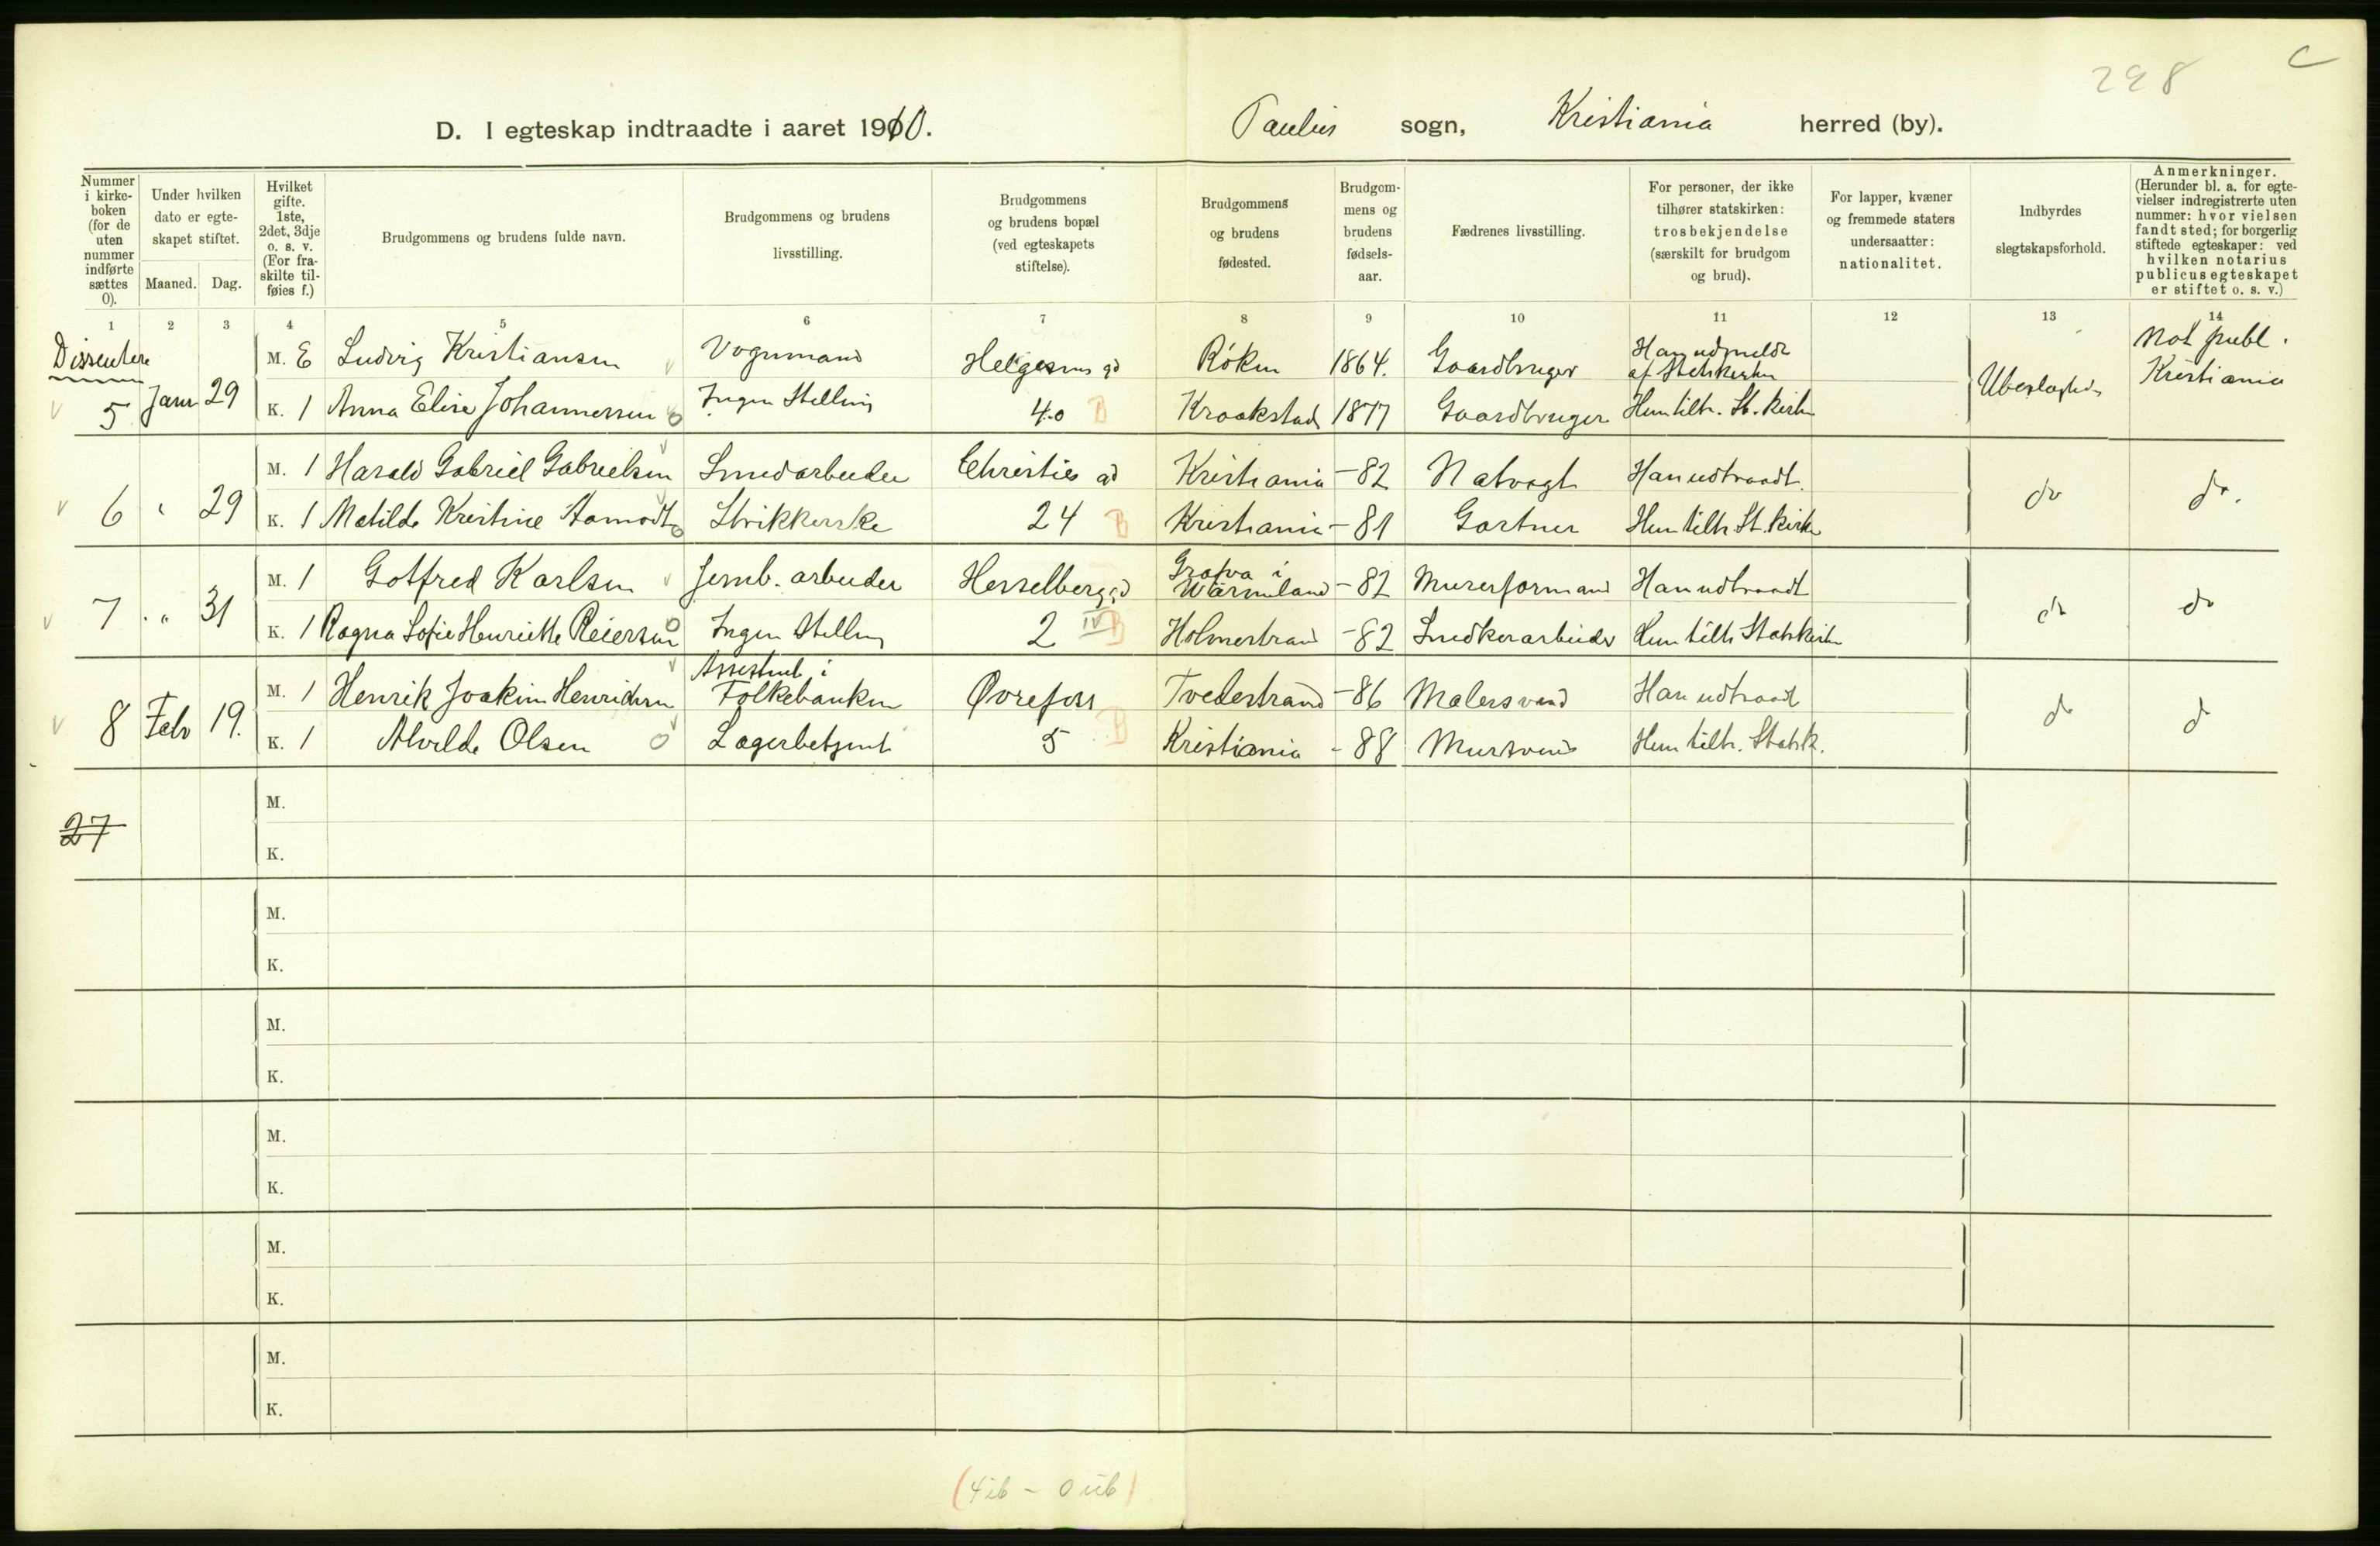 298
C
D. I egteskap indtraadte i aaret 1910. Paulus sogn, Kristiania herred (by).
Nummer i kirke-boken (for de uten nummer indførte sættes 0).
Under hvilken dato er egte-skapet stiftet.
Maaned. Dag.
Hvilket gifte. 1ste, 2det, 3dje o. s. v. (For fra-skilte til-føies f.)
Brudgommens og brudens fulde navn.
Brudgommens og brudens livsstilling.
Brudgommens og brudens bopæl (ved egteskapets stiftelse).
Brudgommens og brudens fødested.
Brudgom-mens og brudens fødsels-aar.
Fædrenes livsstilling.
For personer, der ikke tilhører statskirken: trosbekjendelse (særskilt for brudgom og brud).
For lapper, kvæner og fremmede staters undersaatter: nationalitet.
Indbyrdes slegtskapsforhold.
Anmerkninger. (Herunder bl. a. for egte-vielser indregistrerte uten nummer: hvor vielsen fandt sted; for borgerlig stiftede egteskaper: ved hvilken notarius publicus egteskapet er stiftet o. s. v.)
1 2 3 4 5 6 7 8 9 10 11 12 13 14
Dissentere
M. E Ludvig Kristiansen Vognmand Helgesens gd Røken 1864. Gaardbruger Han udmeldt af Statskirken Not publ.
5 Janr 29 K. 1 Anna Elise Johannessen Ingen Stilling 40 B Kraakstad 1877 Gaardbruger Hun tilh. St. kirken Ubeslægtede Kristiania
M. 1 Harald Gabriel Gabrielsen Smedarbeider Christies gd Kristiania -82 Natvagt Han udtraadt.
6 " 29 K. 1 Matilde Kristine Aamodt Strikkerske 24 B Kristiania -81 Gartner Hun tilh St. kirken do do.
M. 1 Gotfred Karlsen Jernb. arbeider Hesselberg gd Grafva i Wärmland -82 Murerformand Han udtraadt
7 " 31 K. 1 Ragna Sofie Henriette Reiersen Ingen Stilling 2 IV B Holmestrand -82 Snedkerarbeider Hun tilh Statskirken do do
M. 1 Henrik Joakim Henriksen Assistent i Folkebanken Øvrefoss Tvedestrand -86 Malersvend Han udtraadt
8 Febr 19. K. 1 Alvilde Olsen Lagerbetjent 5 B Kristiania -88 Mursvend Hun tilh. Statsk. do do
M.
27
K.
M.
K.
M.
K.
M.
K.
M.
K.
M.
K.
(4 ib - 0 uib)